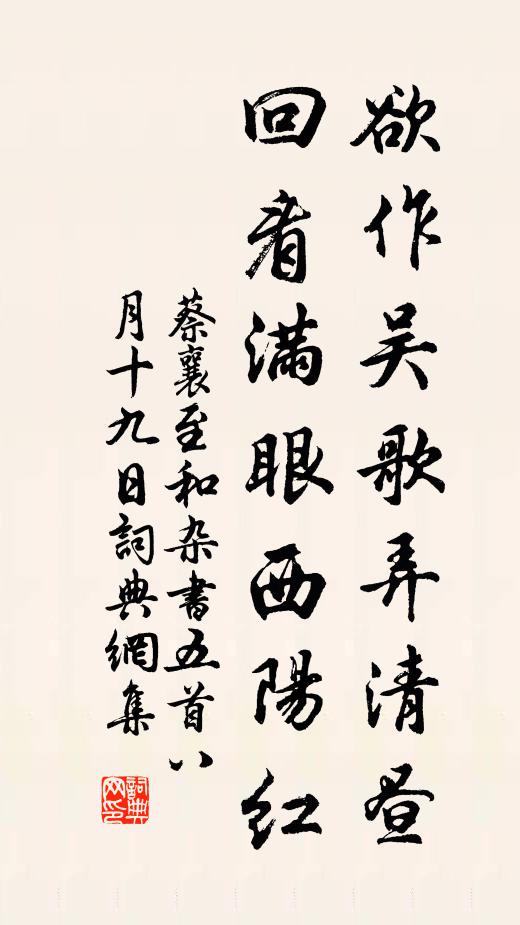 欲作吴歌弄清昼
回看满眼西陽红
蔡襄至和杂書五首八
月十九日詞典網集
詞典网印